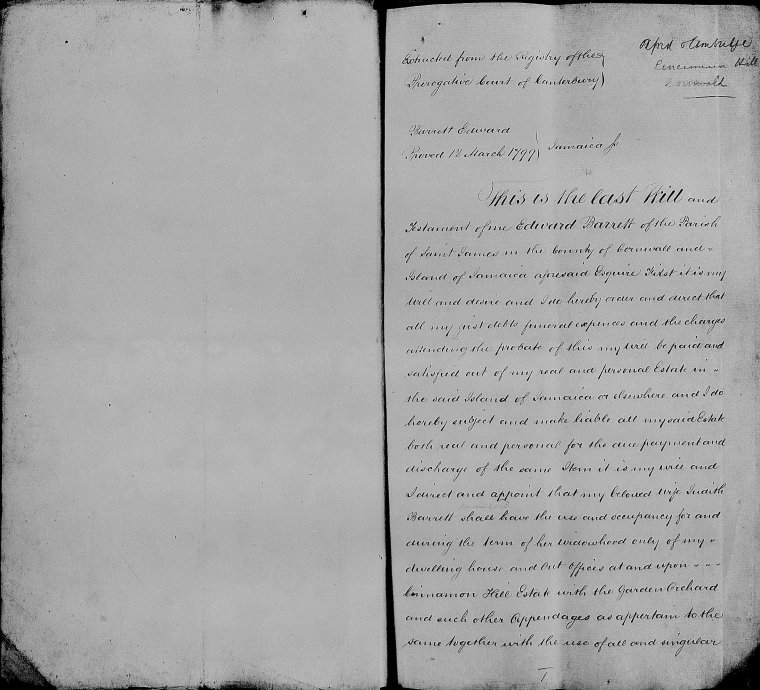 Extracted from the Registry of the
Prerogative Court of Canterbury
Cinnamon Hill
Cornwall
Barrett Edward
Proved 12 March 1799
Jamaica
This is the last Will and
Testament of me Edward Barrett of the Parish
of Saint James in the County of Cornwall and
Island of Jamaica aforesaid Esquire First it is my
Will and desire and I do hereby order and direct that
all my just debts funeral expences and the charges
attending the probate of this my will be paid and
satisfied out of my real and personal Estate in
the said Island of Jamaica or elsewhere and I do
hereby subject and make liable all my said Estate
both real and personal for the due payment and
discharge of the same Item it is my will and
I direct and appoint that my beloved Wife Judith
Barrett shall have the use and occupancy for and
during the term of her widowhood only of my
dwelling house and Out Offices at and upon
Cinnamon Hill Estate with the Garden Orchard
and such other Appendages as appertain to the
same together with the use of all and singular